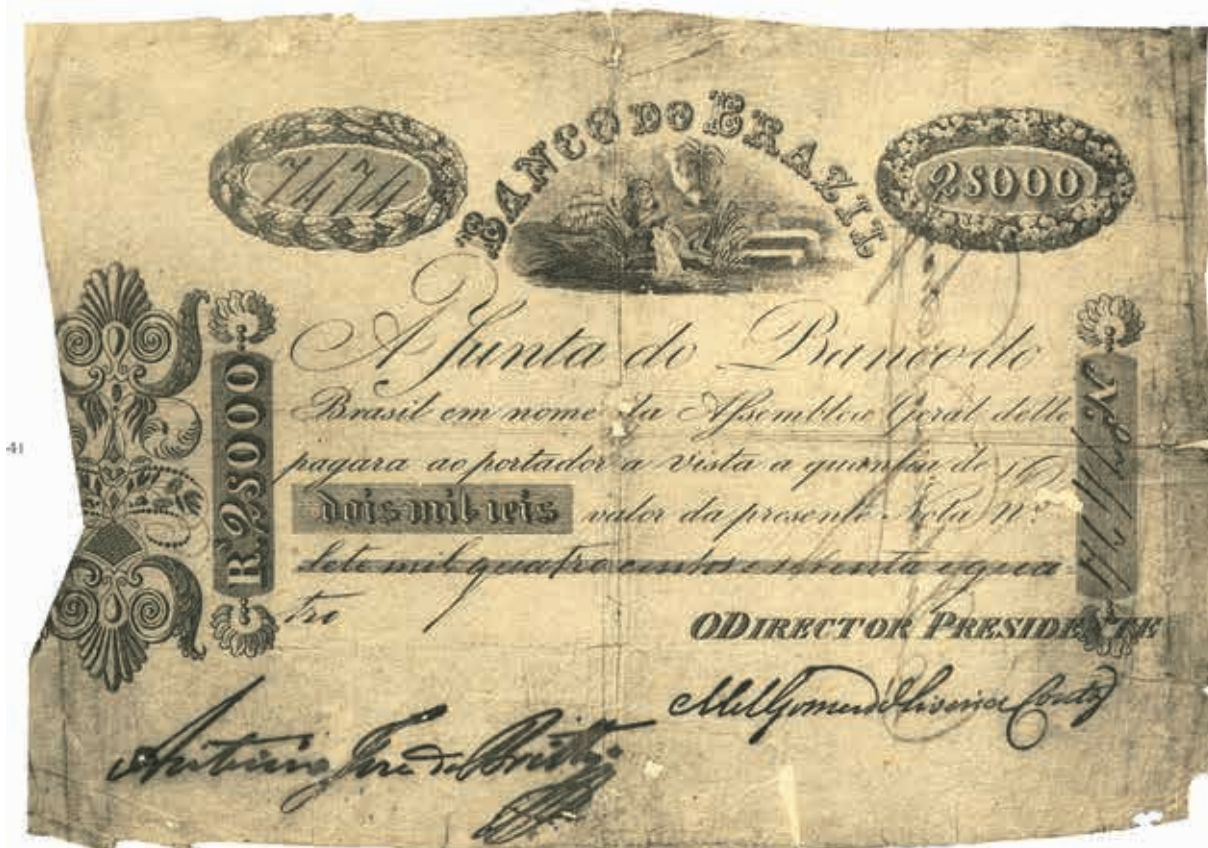 BANCO DO BRAZIL
7474
2$000
A Junta do Banco do
Brasil em nome da Assemblea Geral delle
pagara ao portador a vista a quantia de
dois mil reis valor da presente Nota Nº.
Sete mil quatro centos e setenta e qua
tro
R.2$000
Nº. 7474
O DIRECTOR PRESIDENTE
Antonio José de Britto
41